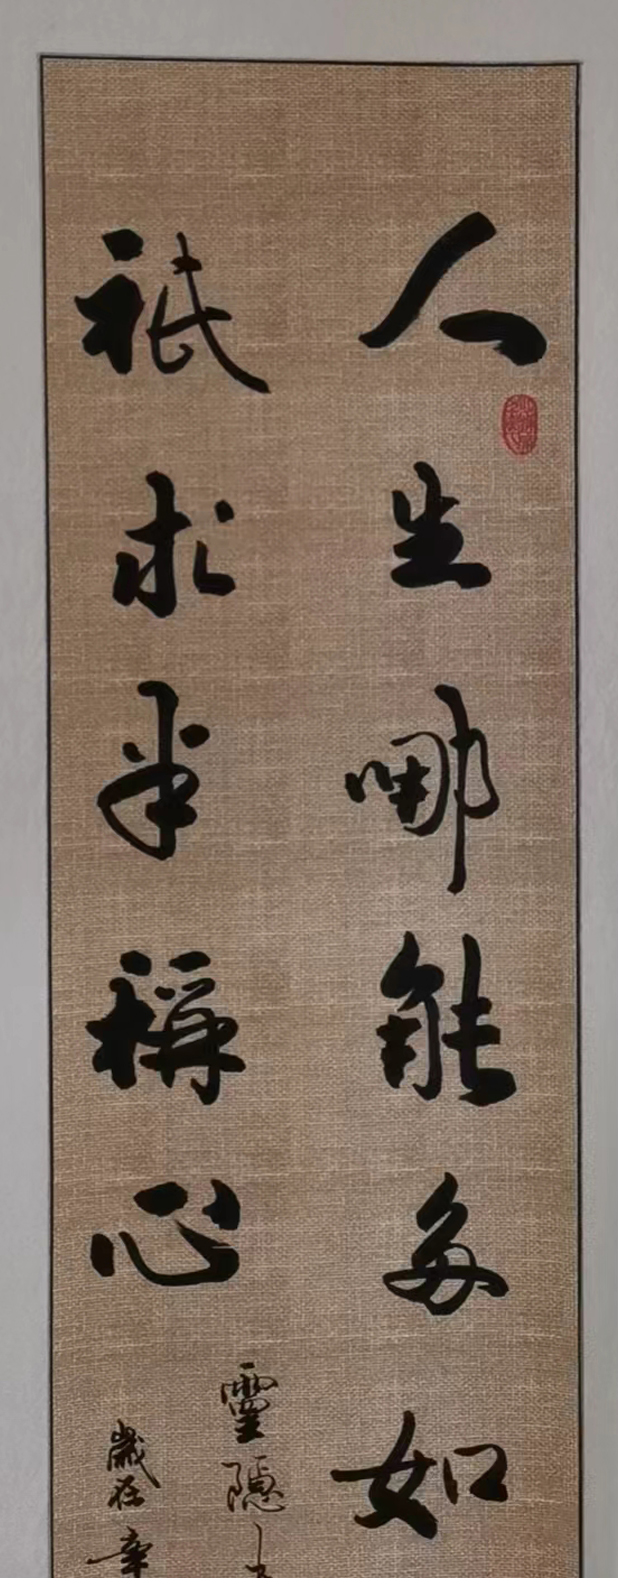 人生哪能多如
祇求半稱心
靈隱
歲在辛